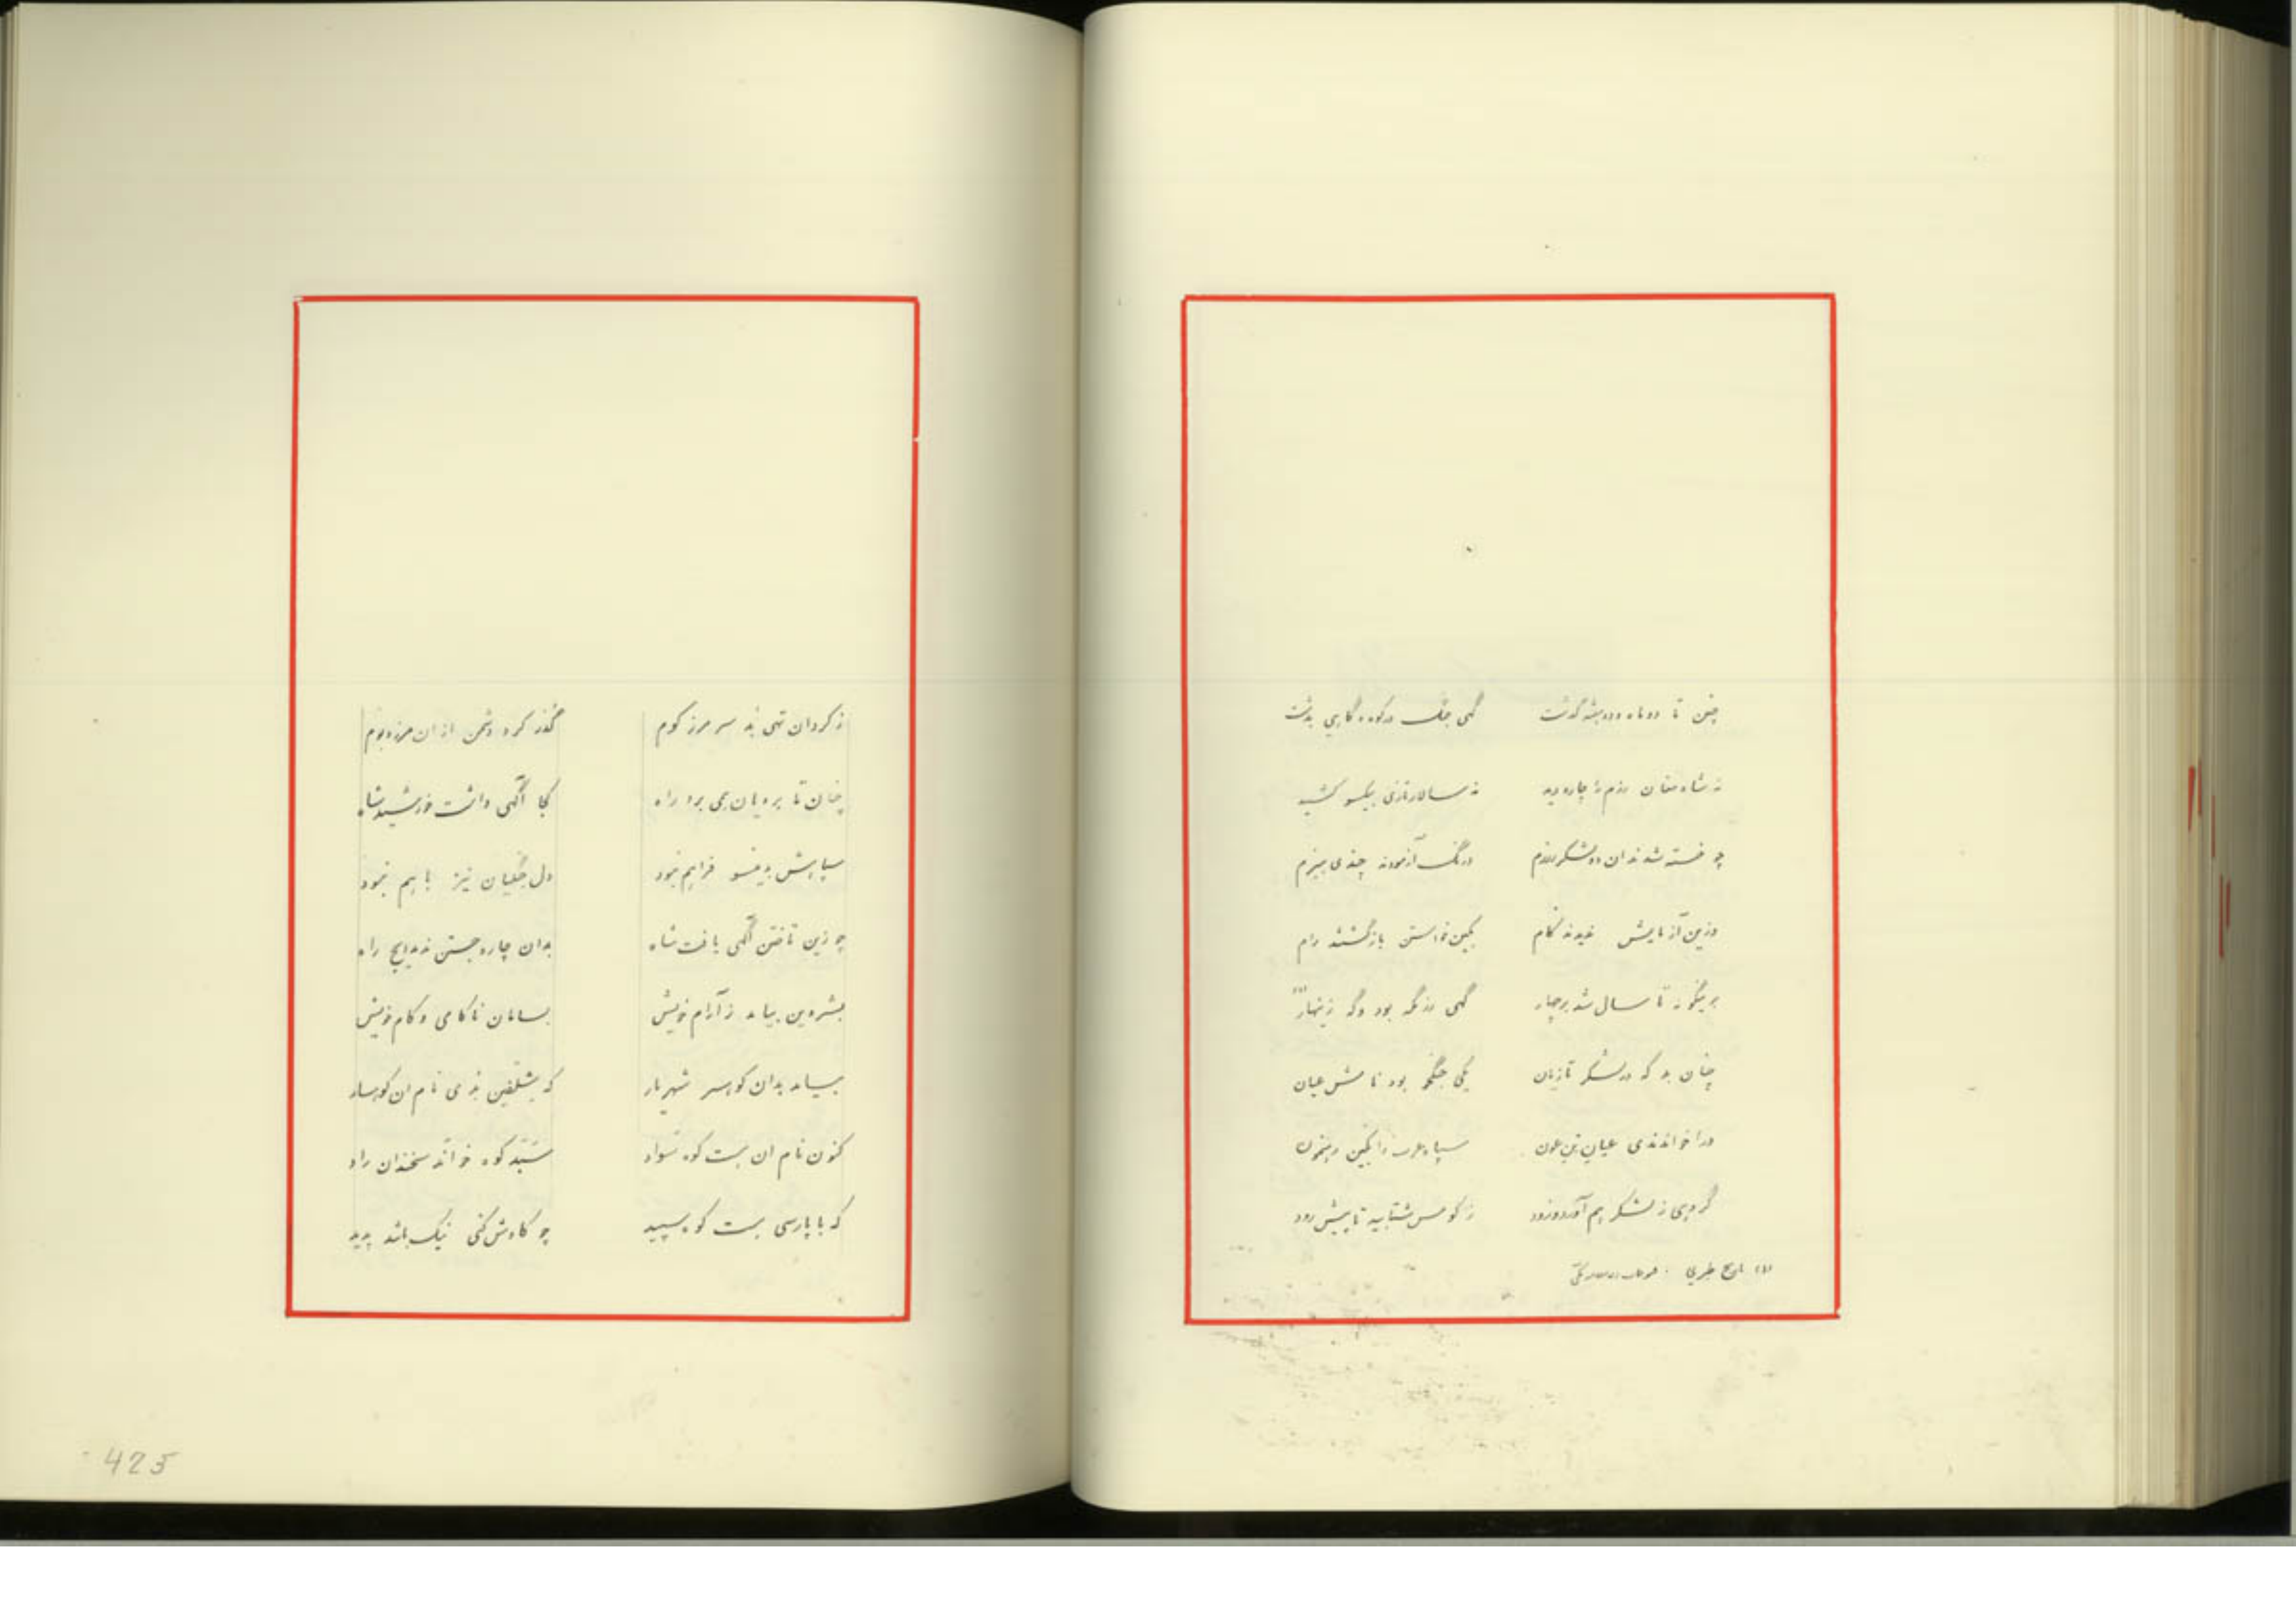 چنین تا دو ماه و دو هفته گذشت گهی جنگ در کوه و گاهی بدشت
نه شاه مغان رزم را چاره دید نه سالار تازی بیکسو کشید
چو خسته شدند آن دو لشکر ز رزم درنگ آزمودند چندی ببزم
وزین آزمایش بکین خواستن بازگشتند رام
بر اینگونه تا سال شد بر چهار گهی رزمگه بود و گه زینهار (۱)
چنان بد که در لشکر تازیان یکی جنگجو بود نامش عیان
ورا خواندندی عیان بن عون سپاه عرب را بکین رهنمون
گروهی ز لشکر بهم آورد زود ز کومس شتابید تا پیش رود
(۱) تاریخ طبری
ز گردان تهی بد سر مرز کوم گذر کرد دشمن از آن مرز و بوم
چنان تا برویان همی برد راه کجا آگهی داشت خورشید شاه
سپاهش فراهم نبود دل جنگیان نیز باهم نبود
چو زین تاختن آگهی یافت شاه بدان چاره جستن ندید ایچ راه
بیامد ز آرام خویش بسامان ناکامی و کام خویش
بیامد بدان کوهسر شهریار که بدی نام آن کوهسار
کنون نام آن هست کوه سواد کوه خواند سخندان راد
که با پارسی هست کوه سپید چو کاوش کنی نیک باشد پدید
425